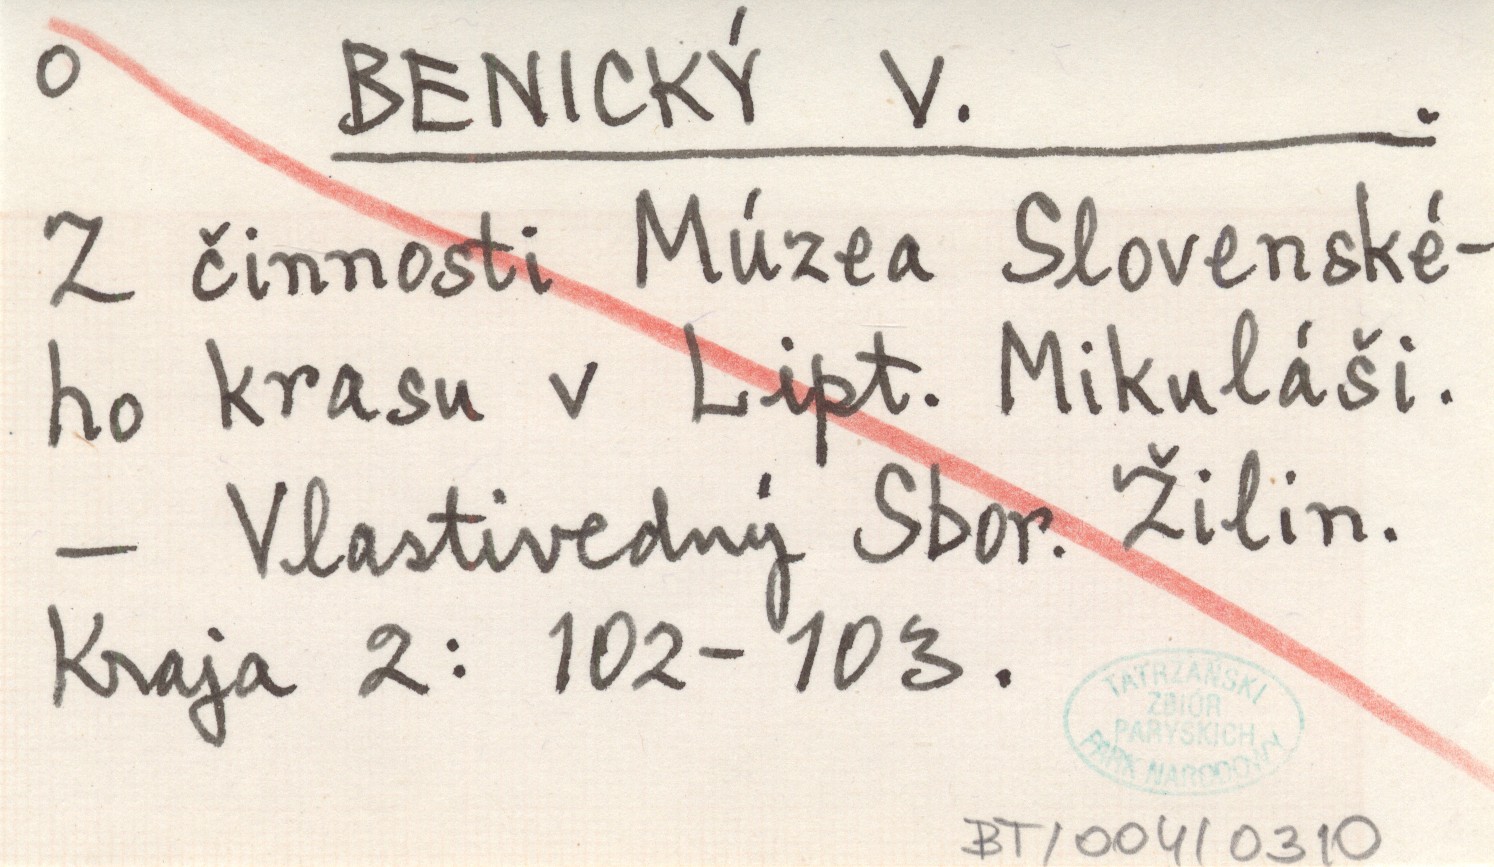 o BENICKÝ V.
Z činnosti Múzea Slovenské-
ho krasu v Lipt. Mikuláši.
— Vlastivedný Sbor. Žilin.
Kraja 2: 102-103.
TATRZAŃSKI
ZBIÓR
PARYSKICH
PARK NARODOWY
BT/004/0310